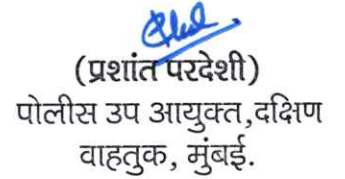 (प्रशांत परदेशी)
पोलीस उप आयुक्त,दक्षिण
वाहतुक, मुंबई.